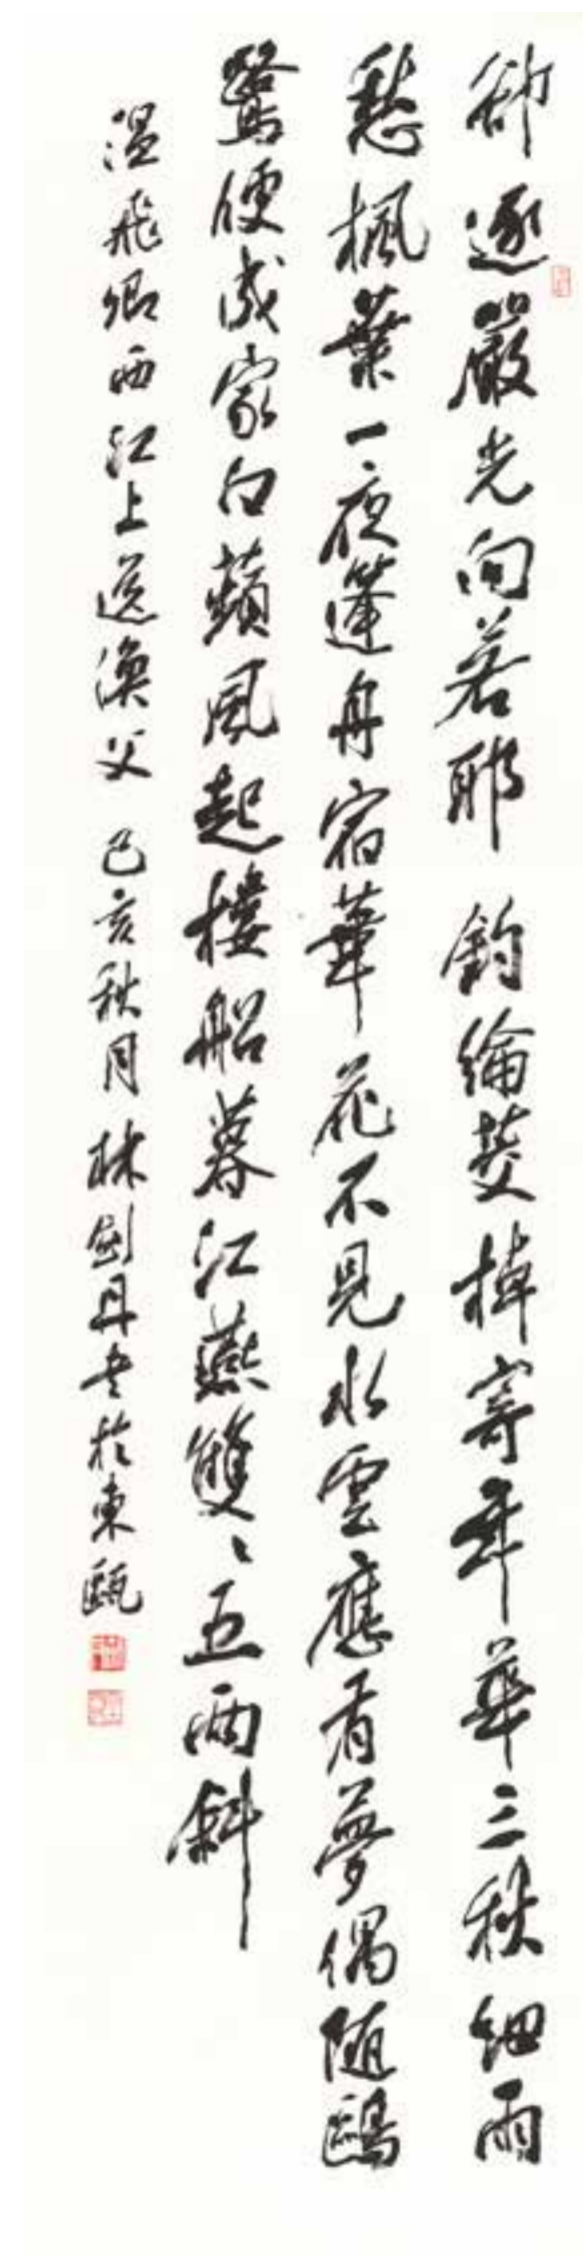 卻逐嚴光向若耶釣綸菱棹寄年華三秋細雨
愁楓葉一夜篷舟宿葦花不見水雲應有夢偶隨鷗
鷺便成家白蘋風起樓船暮江燕雙〻五兩斜
溫飛卿西江上送漁父 己亥秋月 林劍丹書於東甌